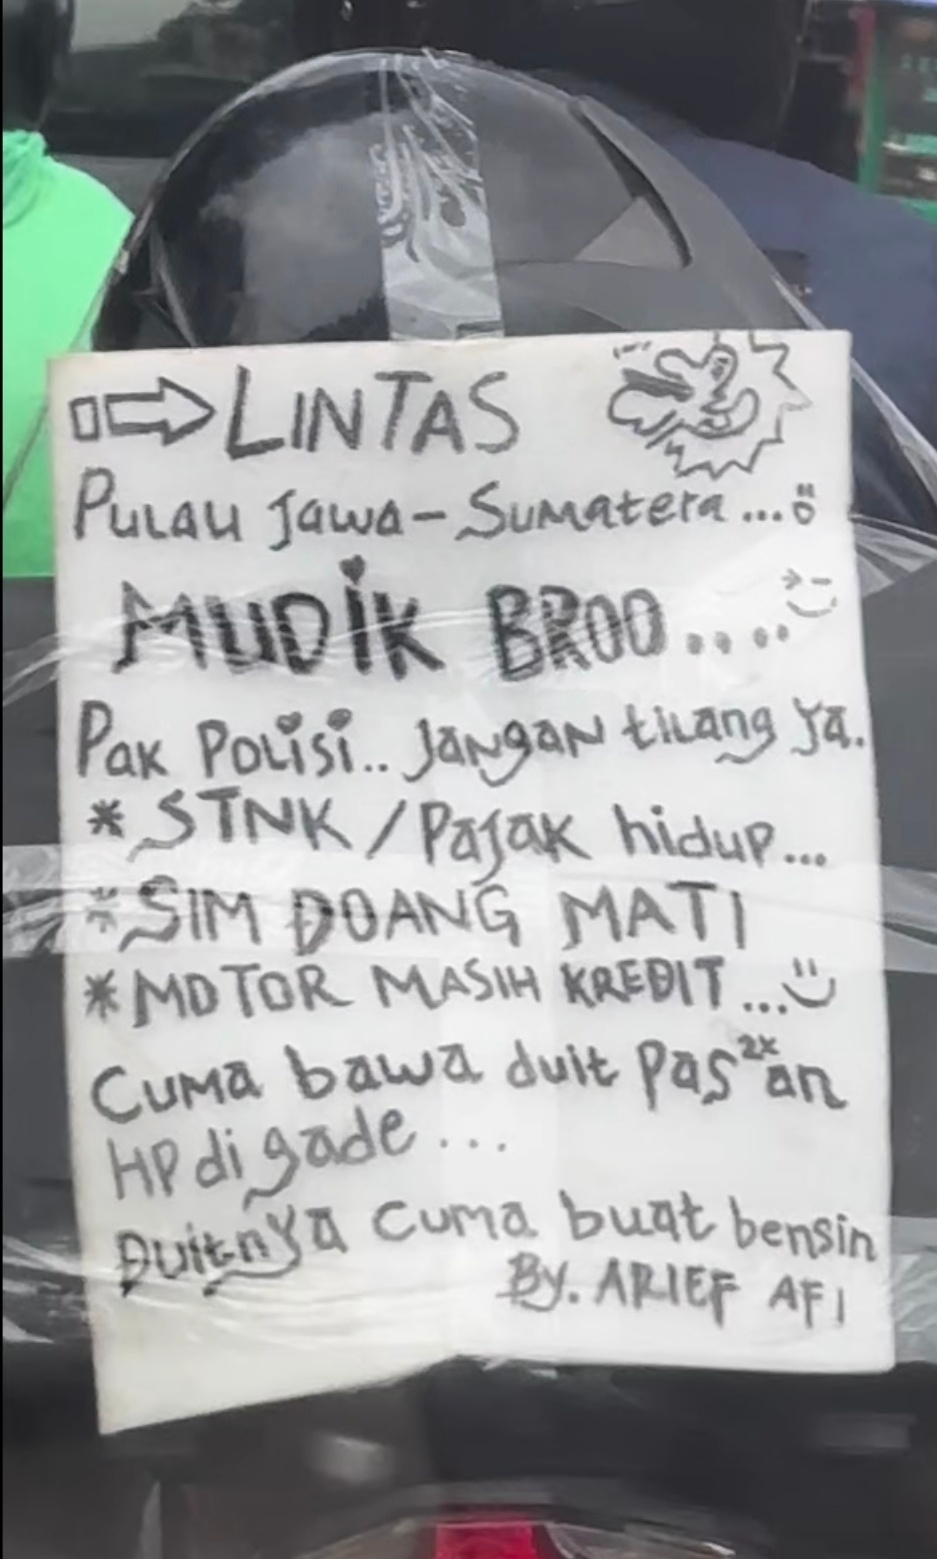 LINTAS
Pulau Jawa - Sumatera ...
MUDIK BROO....
Pak Polisi.. Jangan tilang ya.
* STNK / Pajak hidup...
* SIM DOANG MATI
* MOTOR MASIH KREDIT ...
Cuma bawa duit Pas2xan
HP di gade ...
Duitnya Cuma buat bensin
By. ARIEF AFI